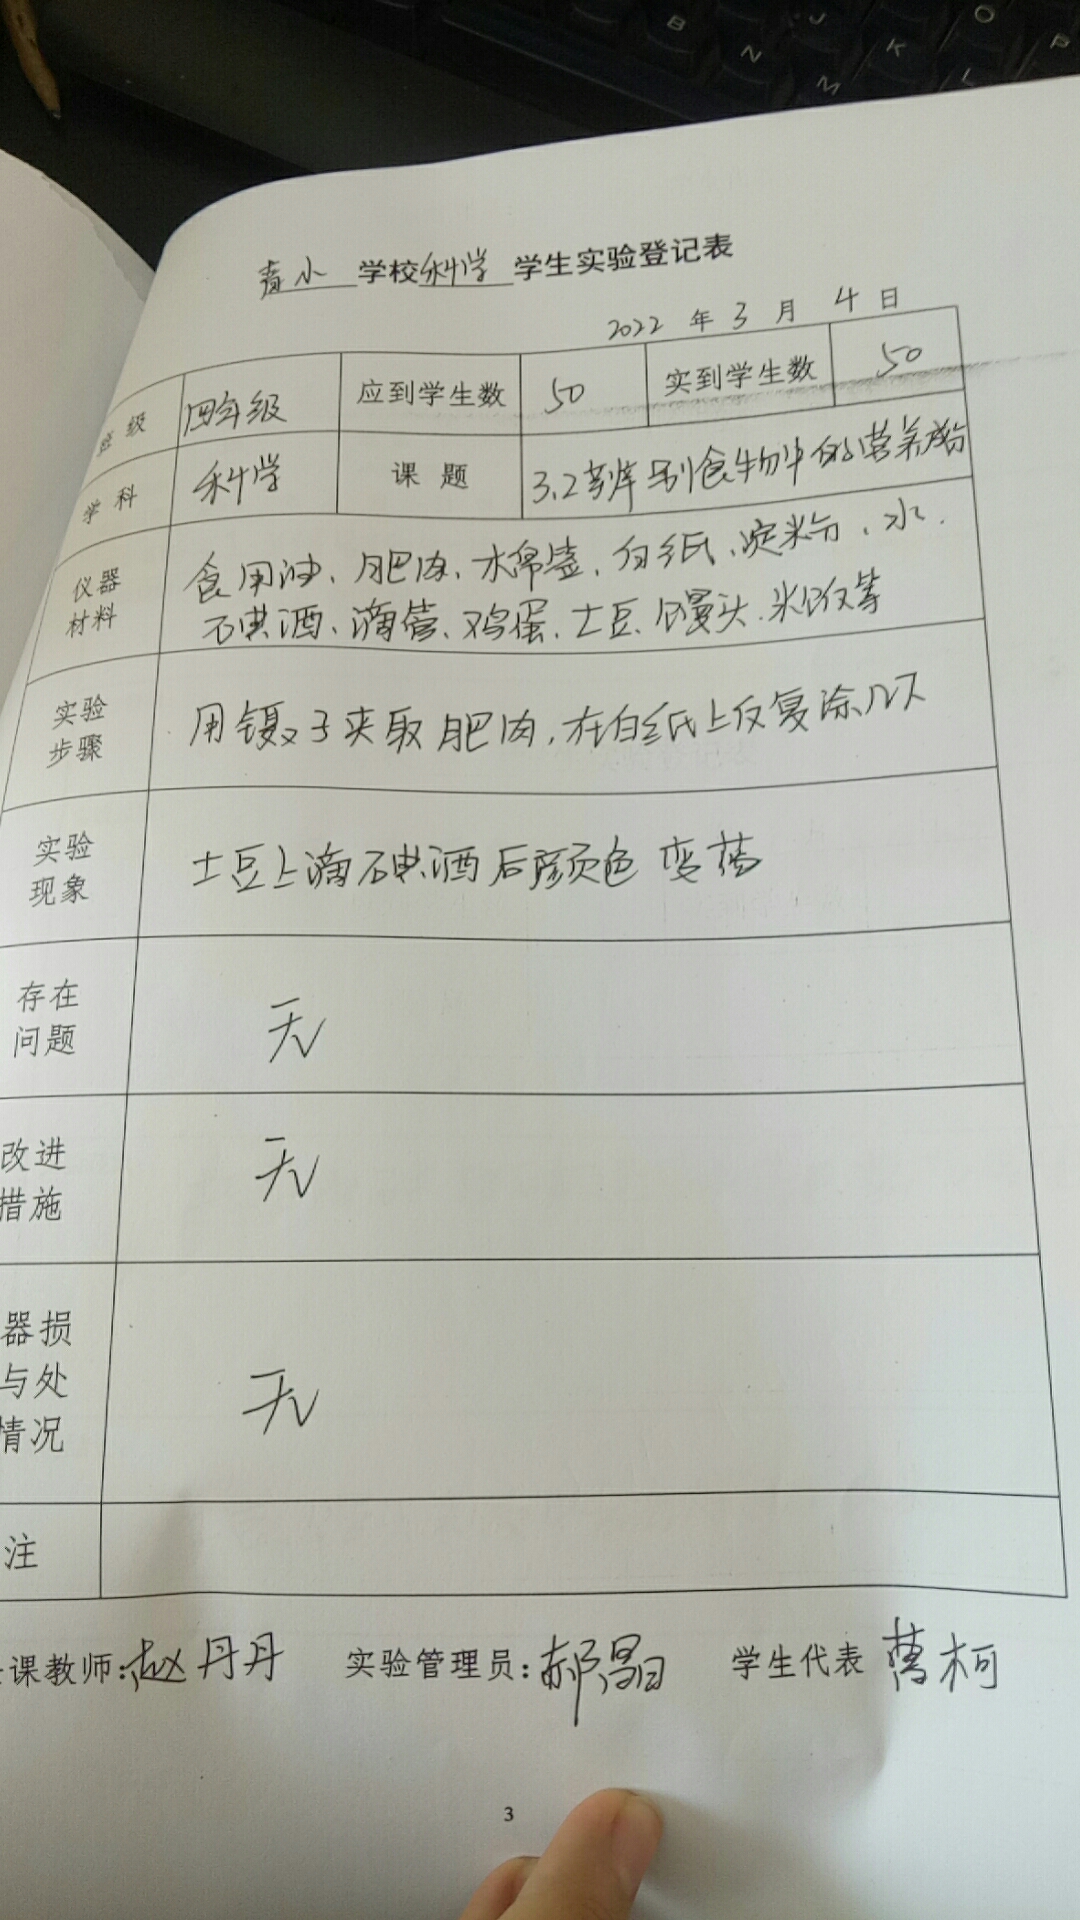 青小 学校 科学 学生实验登记表
2022 年 3 月 4 日
班 级 四年级 应到学生数 50 实到学生数 50
学 科 科学 课 题 3.2 辨别食物中的营养成份
仪器
材料
食用油、肥肉、木棉签、白纸、淀粉、水、
石典酒、滴管、鸡蛋、土豆、馒头、米饭等
实验
步骤
用镊子夹取肥肉,在白纸上反复涂几下
实验
现象
土豆上滴石典酒后颜色变蓝
存在
问题
无
改进
措施
无
器损
与处
情况
无
注
课教师:赵丹丹 实验管理员:郝晶 学生代表 柯
3
B N J M K O L P